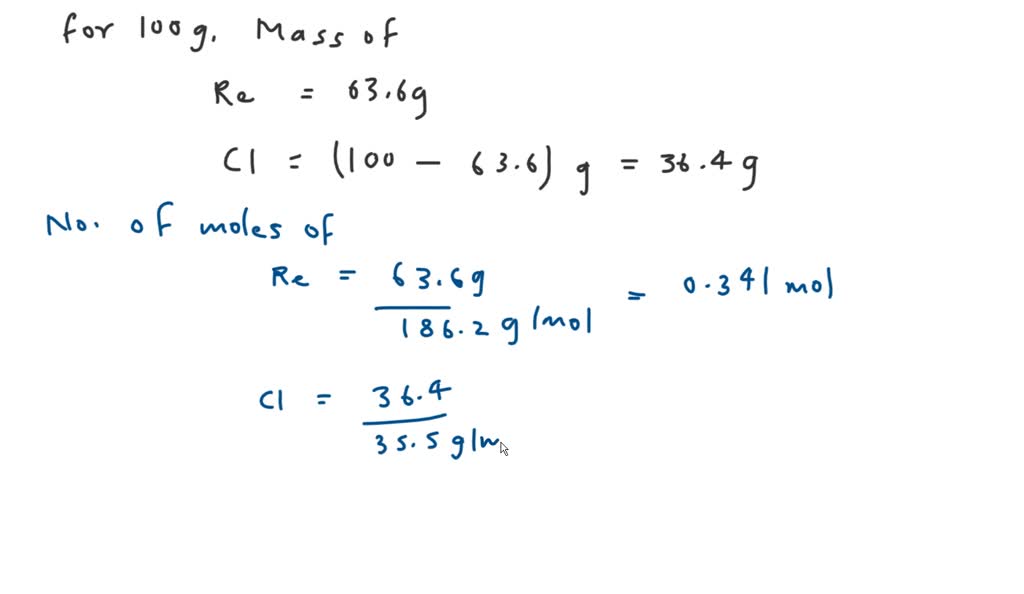 for 100 g. Mass of
Re = 63.6g
Cl = (100 − 63.6) g = 36.4 g
No. of moles of
Re = 63.6g
186.2 g/mol
= 0.341 mol
Cl = 36.4
35.5 g/m